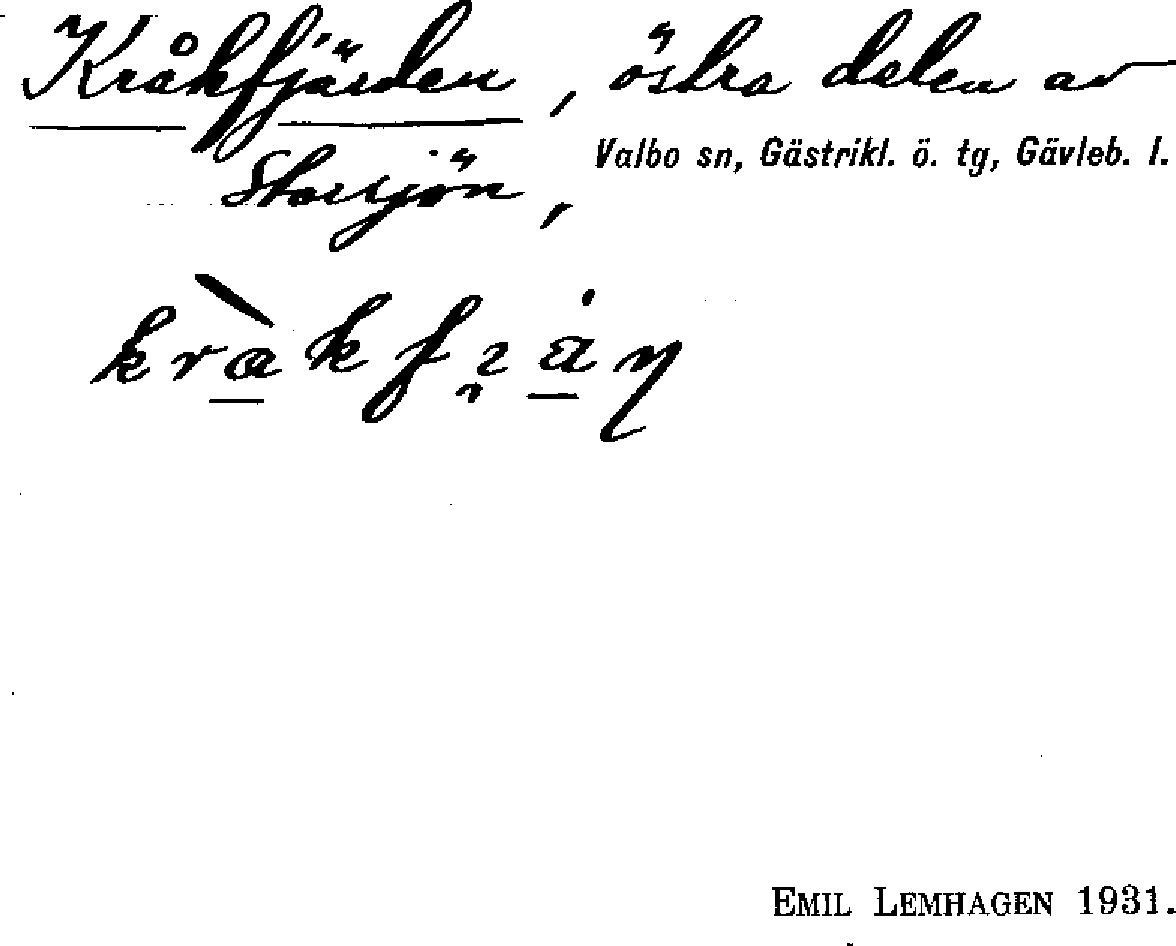 Kråkfjärden, östra delen av
Valbo sn, Gästrikl. ö. tg, Gävleb. l.
Storsjön,
EMIL LEMHAGEN 1931.